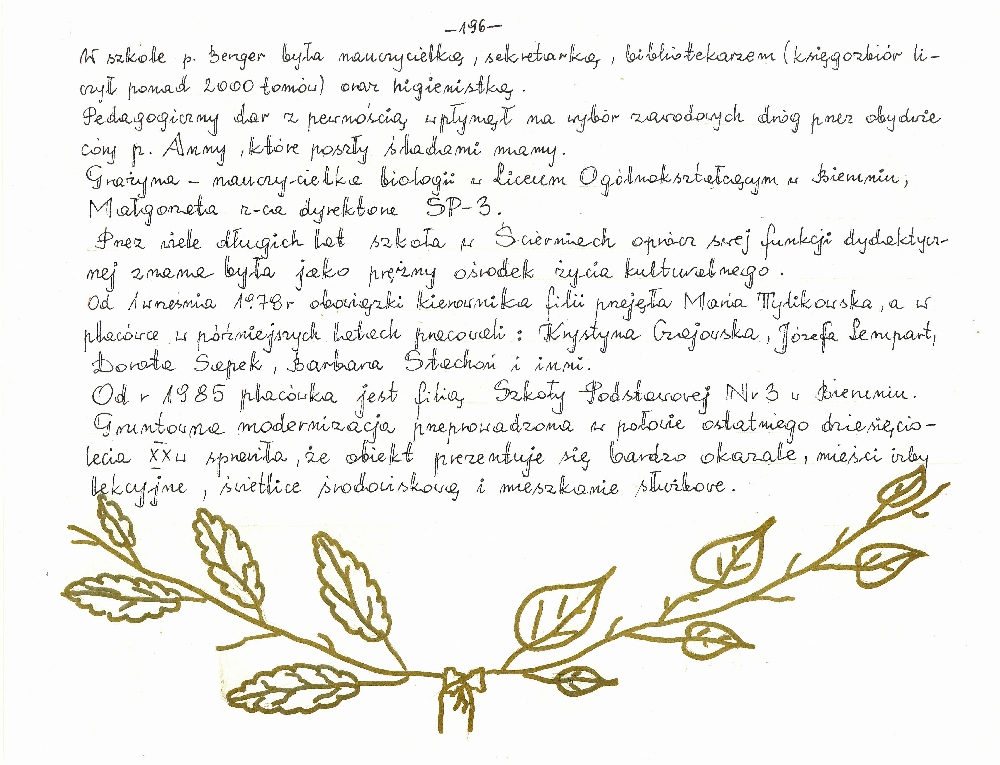 -196-
W szkole p. Berger była nauczycielką, sekretarką, bibliotekarzem (księgozbiór li-
czył ponad 2000 tomów) oraz higienistką.
Pedagogiczny dar z pewnością wpłynął na wybór zawodowych dróg przez obydwie
córy p. Anny, które poszły śladami mamy.
Grażyna - nauczy-cielka biologii w Liceum Ogólnokształcącym w Bieruniu,
Małgorzata z-ca dyrektora SP-3.
Przez wiele długich lat szkoła w Ścierniach oprócz swej funkcji dydaktycz-
nej znana była jako prężny ośrodek życia kulturalnego.
Od 1 września 1978r obowiązki kierownika filii przejęła Maria Tylikowska, a w
placówce w późniejszych latach pracowali: Krystyna Czajowska, Józefa Lempart,
Dorota Sapek, Barbara Stachoń i inni.
Od r 1985 placówka jest filią Szkoły Podstawowej Nr 3 w Bieruniu.
Gruntowna modernizacja przeprowadzona w połowie ostatniego dziesięcio-
lecia XXw sprawiła, że obiekt prezentuje się bardzo okazale, mieści izby
lekcyjne, świetlice środowiskową i mieszkanie służbowe.